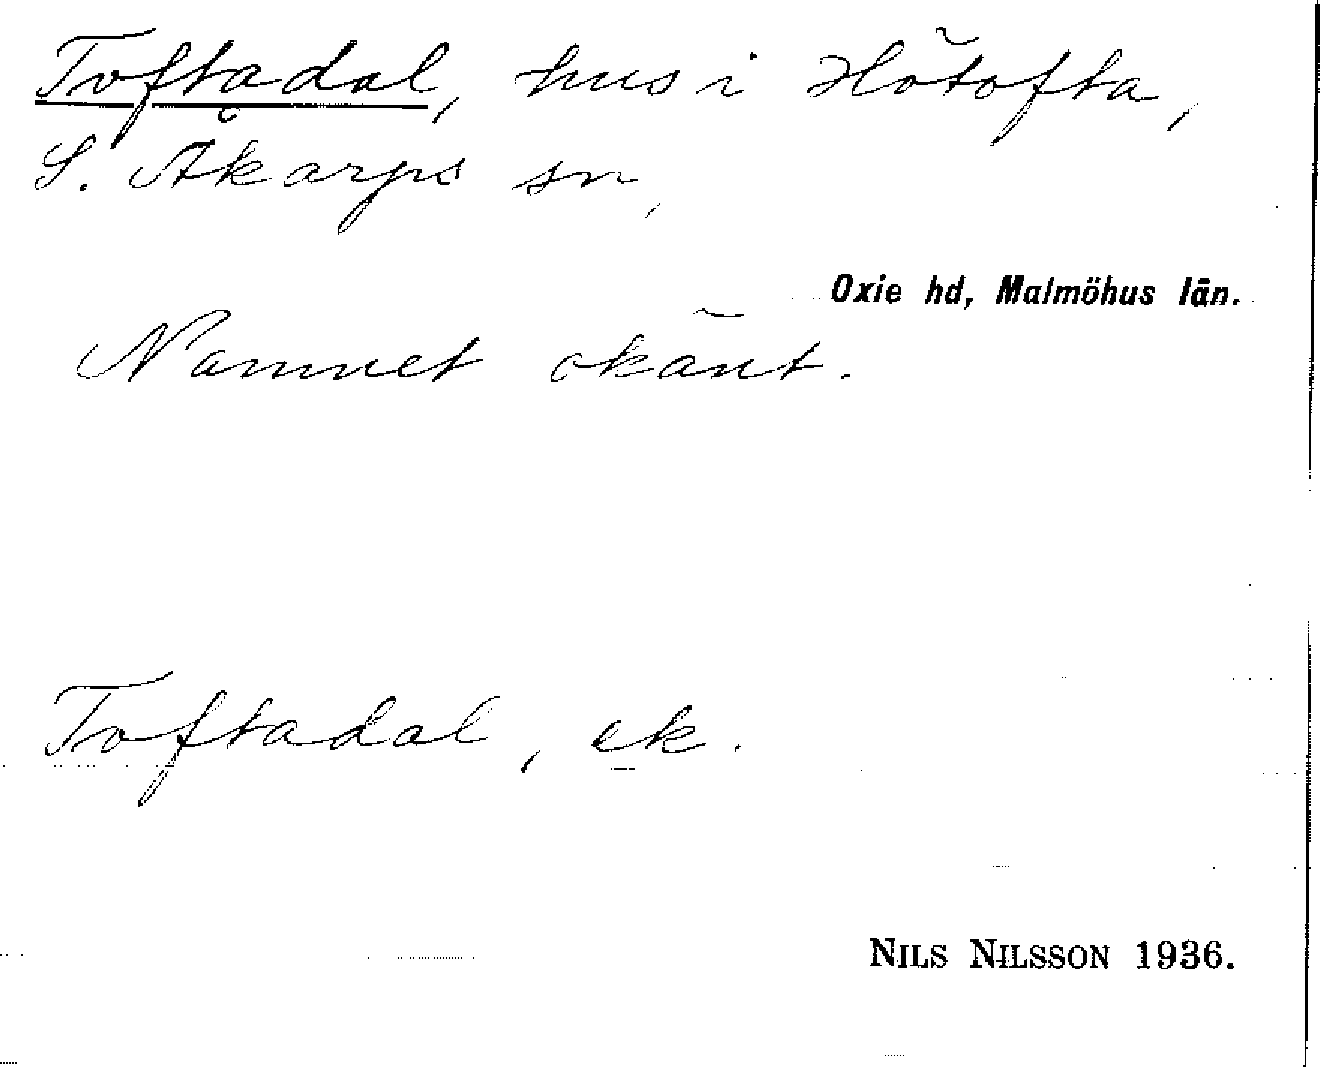 Toftadal, hus i Hötofta,
S. Åkarps sn,
Oxie hd, Malmöhus län.
Namnet okänt.
Toftadal, ek.
NILS NILSSON 1936.